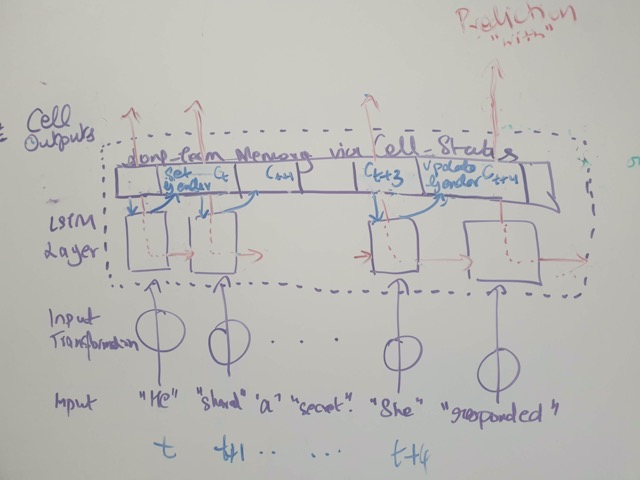 Prediction
"with"
Cell
Outputs
Long-term Memory via Cell-States
Set gender Ct Ct+1 Ct+3 update gender Ct+4
LSTM
Layer
Input
Transformation
Input "He" "shared" "a" "secret". "She" "responded"
t t+1 .. ... t+4